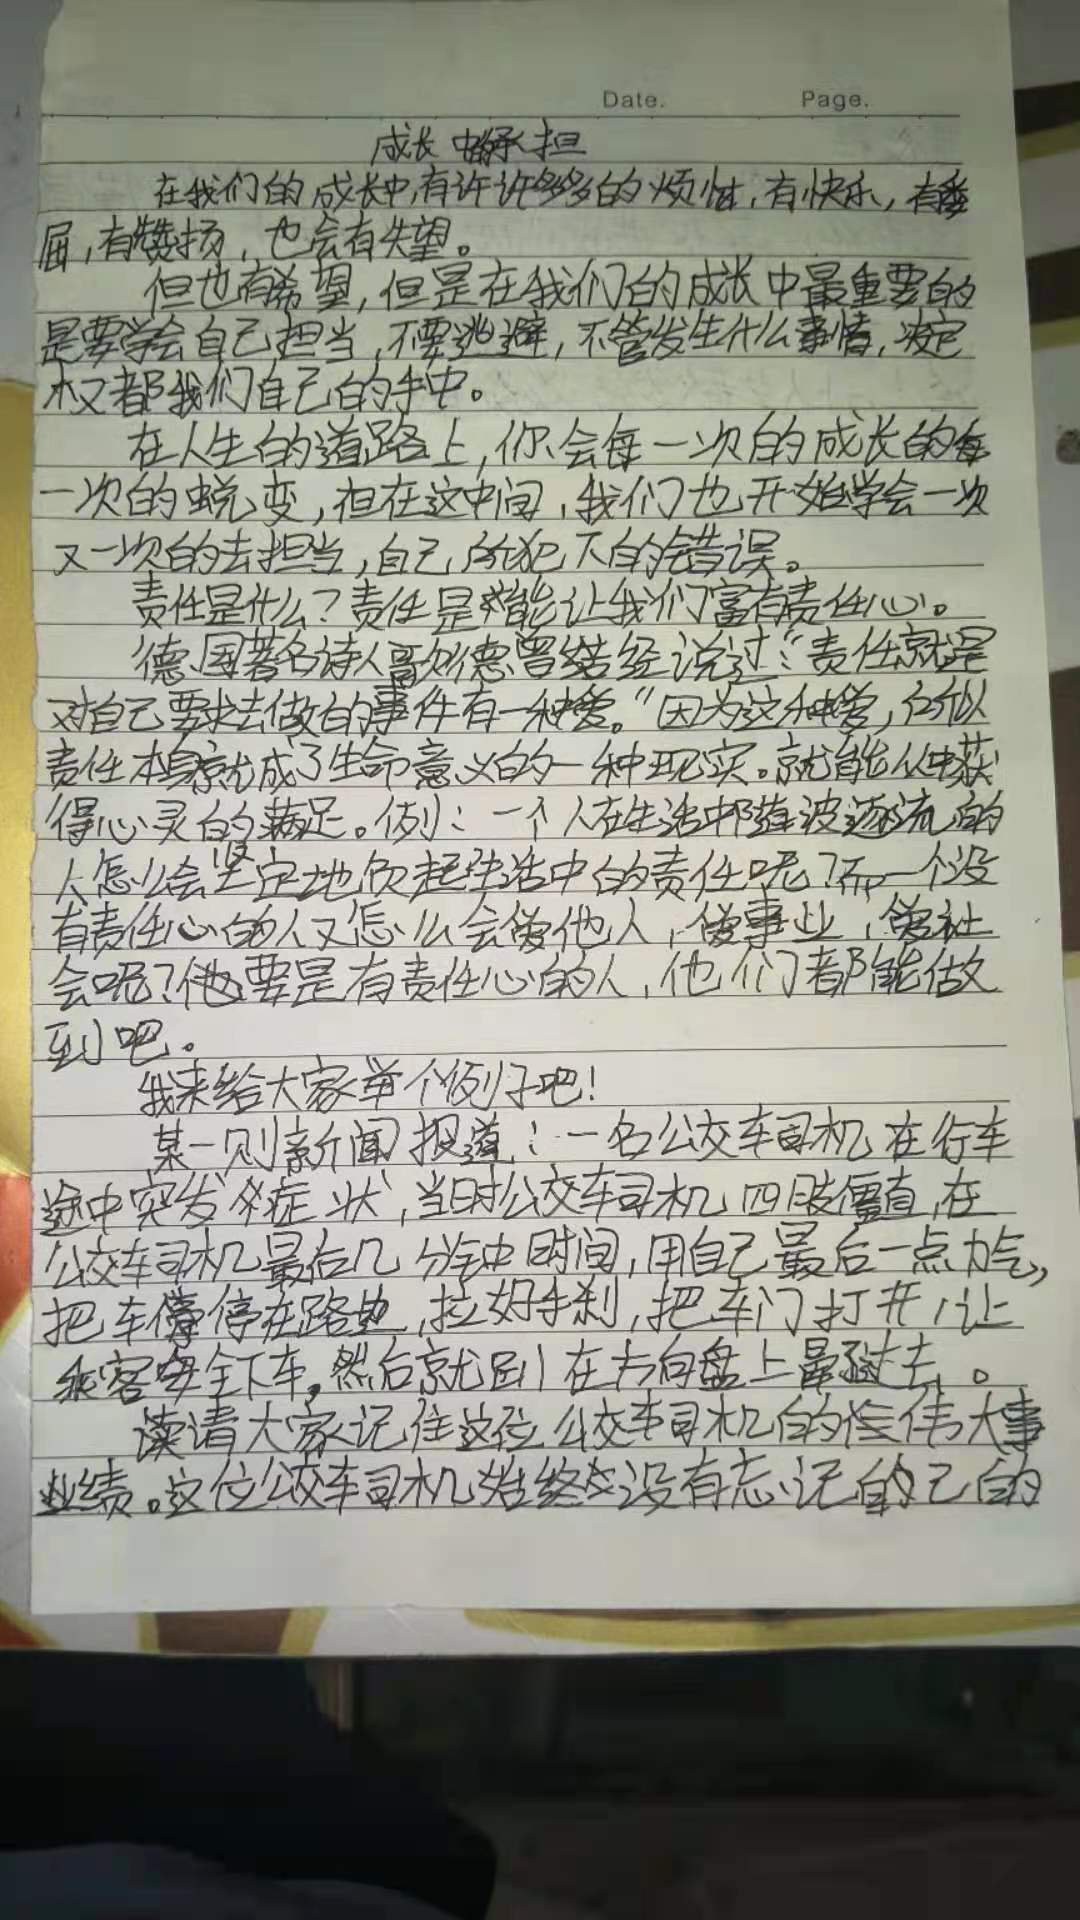 Date. Page.
成长中的承担
在我们的成长中,有许许多多的烦恼,有快乐,有委
屈,有赞扬,也会有失望。
但也有希望,但是在我们的成长中最重要的
是要学会自己担当,不要逃避,不管发生什么事情,决定
权都我们自己的手中。
在人生的道路上,你会每一次的成长的每
一次的蜕变,但在这中间,我们也开始学会一次
又一次的去担当,自己所犯下的错误。
责任是什么?责任是能让我们富有责任心。
德国著名诗人歌德曾经说过:“责任就是
对自己要求去做的事件有一种爱。”因为这种爱,所以
责任本身就成了生命意义的一种现实。就能从中获
得心灵的满足。例:一个人在生活中随波逐流的
人怎么会坚定地负起生活中的责任呢?而一个没
有责任心的人又怎么会爱他人,爱事业,爱社
会呢?他要是有责任心的人,他们都能做
到吧。
我来给大家举个例子吧!
某一则新闻报道:一名公交车司机在行车
途中突发症状,当时公交车司机四肢僵直,在
公交车司机最后几分钟时间,用自己最后一点力气,
把车停在路边,拉好手刹,把车门打开,让
乘客安全下车,然后就趴在方向盘上晕过去。
请大家记住这位公交车司机的伟大事
业绩。这位公交车司机始终没有忘记自己的